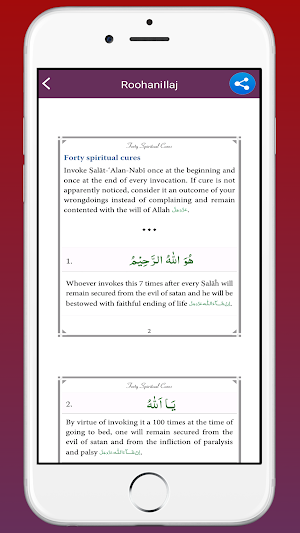 RoohaniIlaj
Forty Spiritual Cures
Forty spiritual cures
Invoke Ṣalāt-‘Alan-Nabī once at the beginning and
once at the end of every invocation. If cure is not
apparently noticed, consider it an outcome of your
wrongdoings instead of complaining and remain
contented with the will of Allah عَزَّوَجَلَّ.
•••
1. هُوَ اللهُ الرَّحِيْمُ
Whoever invokes this 7 times after every Ṣalāĥ will
remain secured from the evil of satan and he will be
bestowed with faithful ending of life اِنْ شَآءَاللّٰه عَزَّوَجَلَّ.
2
Forty Spiritual Cures
2. يَا اَللهُ
By virtue of invoking it a 100 times at the time of
going to bed, one will remain secured from the
evil of satan and from the infliction of paralysis
and palsy اِنْ شَآءَاللّٰه عَزَّوَجَلَّ.